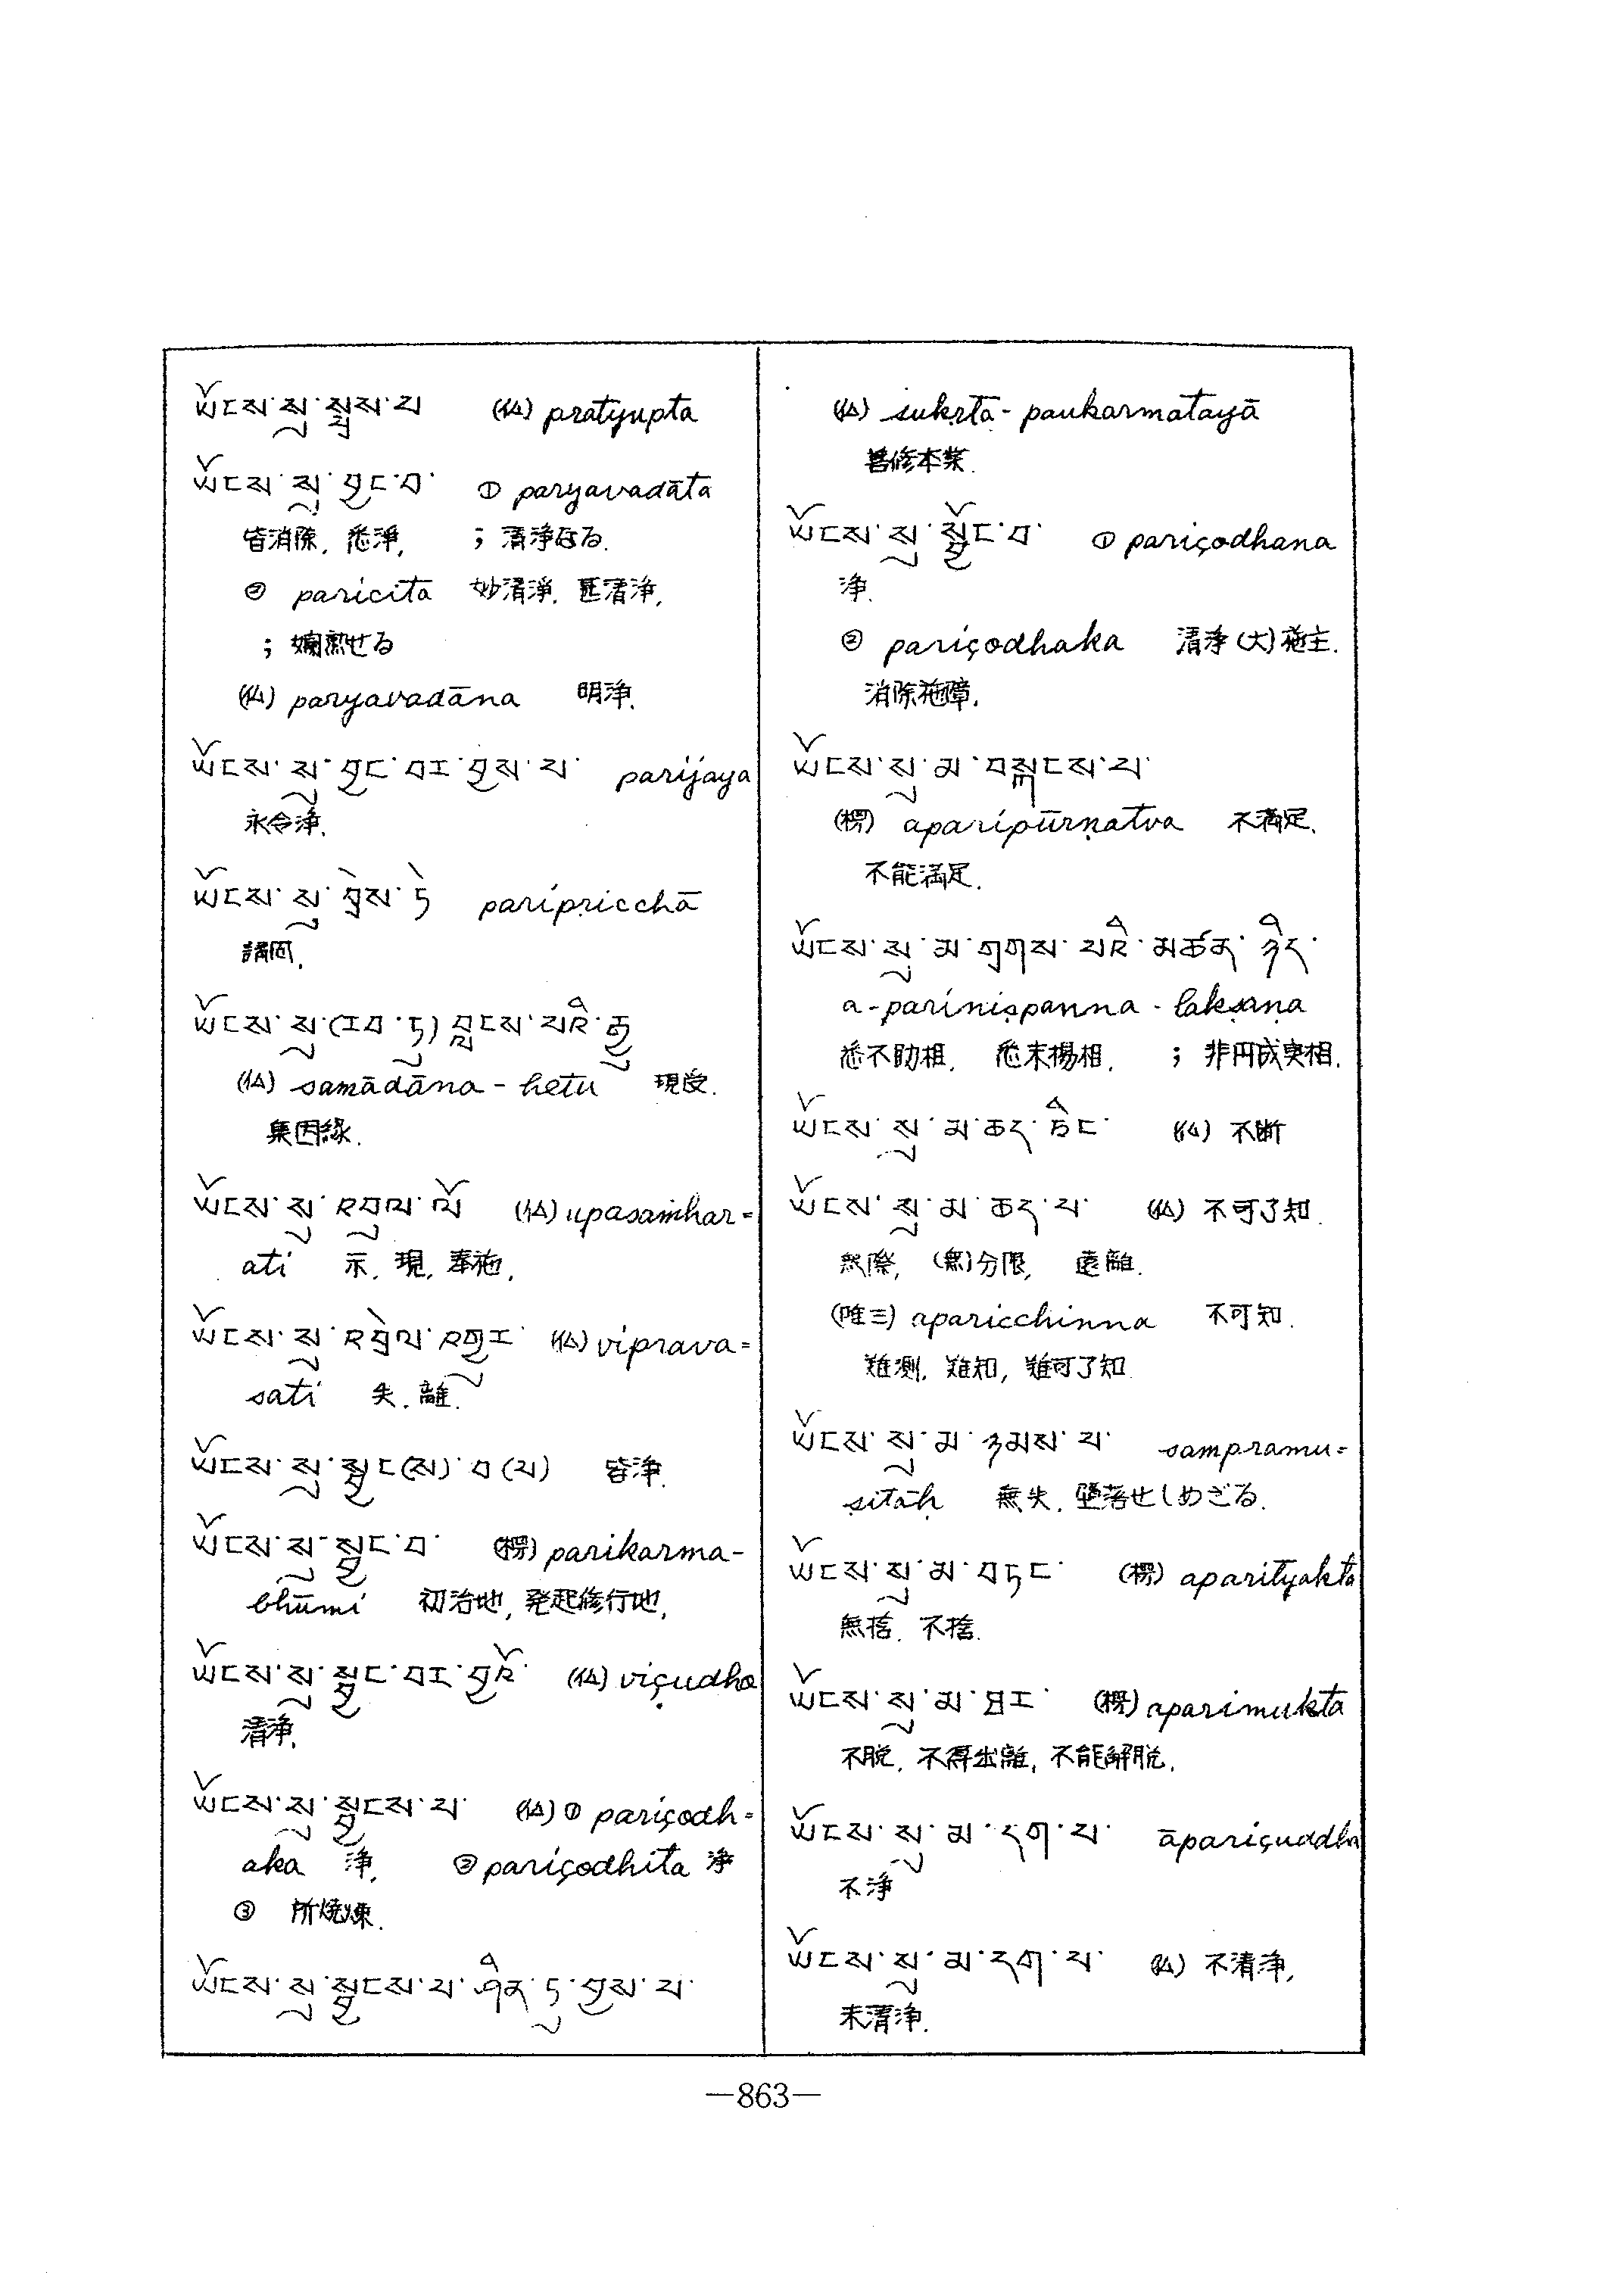 ཡོངས་སུ་སྤྲས་པ (仏) pratyupta
ཡོངས་སུ་བྱང་བ་ ① paryavadāta
皆消除, 悉淨, ; 清淨なる.
② paricita 妙清淨, 甚清淨,
; 嫻熟せる
(仏) paryavadāna 明淨.
ཡོངས་སུ་བྱང་བར་བྱས་པ་ parijaya
永令淨.
ཡོངས་སུ་དྲིས་ཏེ paripṛicchā
請問.
ཡོངས་སུ་(རབ་ཏུ) བླངས་པའི་རྒྱུ
(仏) samādāna-hetu 現受.
集因緣.
ཡོངས་སུ་འབུལ་ལོ (仏) upasaṁhar=
ati 示, 現, 奉施,
ཡོངས་སུ་འབྲེལ་འགྱུར (仏) viprava=
sati 失, 離.
ཡོངས་སུ་སྦྱང(ས)་བ(པ) 皆淨.
ཡོངས་སུ་སྦྱང་བ་ (楞) parikarma-
bhūmi 初治地, 発起修行地,
ཡོངས་སུ་སྦྱང་བར་བྱའོ་ (仏) viçudha
清淨.
ཡོངས་སུ་སྦྱངས་པ་ (仏) ① pariçodh=
aka 淨, ② pariçodhita 淨
③ 所燒煉.
ཡོངས་སུ་སྦྱངས་པ་ཤིན་ཏུ་བྱས་པ་
(仏) sukṛta-paukarmatayā
善修本業.
ཡོངས་སུ་སྦྱོང་བ་ ① pariçodhana
淨.
② pariçodhaka 清淨(大)施主.
消除施障.
ཡོངས་སུ་མ་བསྐངས་པ་
(楞) aparipūrṇatva 不満足.
不能満足.
ཡོངས་སུ་མ་གྲུགས་པའི་མཚན་ཉིད་
a-pariniṣpanna-lakṣaṇa
悉不助相, 悉未揚相, ; 非円成実相.
ཡོངས་སུ་མ་ཆད་ཅིང་ (仏) 不断
ཡོངས་སུ་མ་ཆད་པ་ (仏) 不可了知.
無際, (無)分限, 遠離.
(唯三) aparicchinna 不可知.
難測, 難知, 難可了知.
ཡོངས་སུ་མ་ཉམས་པ་ sampramu=
ṣitāḥ 無失, 墮落せしめざる.
ཡོངས་སུ་མ་བཏང་ (楞) aparityakta
無捨, 不捨.
ཡོངས་སུ་མ་ཐར་ (楞) aparimukta
不脱, 不得出離, 不能解脱,
ཡོངས་སུ་མ་དག་པ་ āpariçuddha
不淨
ཡོངས་སུ་མ་དག་པ་ (仏) 不清淨,
未清淨.
—863—